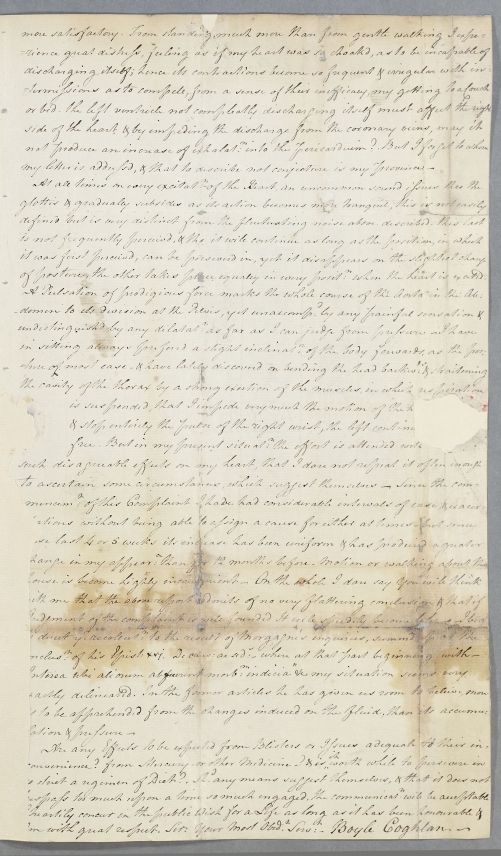 more satisfactory. From standing much more than from gentle walking I expe-
-rience great distress, feeling as if my heart was so choak'd, as to be incapable of
discharging itself; hence its contractions become so frequent & irregular with in-
-termissions as to compell, from a sense of their inefficacy, my getting to a couch
or bed. the left ventricle not compleatly discharging itself must affect the right
side of the heart & by impeding the discharge from the coronary veins, may it
not produce an increase of exhalatn. into the Pericardium? But I forget to whom
my letter is address'd, & that to describe not conjecture is my province —
At all times on every excitatn. of the Heart an uncommon sound issues thro the
glottis & gradually subsides as its action becomes more tranquil, this is not easily
defined but is very distinct from the fluctuating noise above described. this last
is not frequently perceived, & tho' it will continue as long as the position, in which
it was first perceived, can be persevered in, yet it disappears on the slightest change
of posture, the other takes place equally in every positn. when the heart is excited.
A Pulsation of prodigious force marks the whole course of the Aorta in the Ab-
domen to its division at the Pelvis, yet unaccompd. by any painful sensation &
undistinguish'd by any dilatatn. as far as I can judge from pressure. I have
in sitting always preferred a slight inclinatn. of the body forwards, as the pos-
ture of most ease, & have lately discovered on bending the head backwds. & straitening
the cavity of the thorax by a strong exertion of the muscles, in which respiration
is suspended, that I impede very much the motion of the h
& stop entirely the pulse of the right wrist, the left contin
free. But in my present situatn. the effort is attended with
such disagreable effects on my heart, that I dare not repeat it often enough
to ascertain some circumstances which suggest themselves — Since the com-
mencemt. of this Complaint I have had considerable intervals of ease &
-tions without being able to assign a cause for either at times but since
last 4 or 5 weeks its increase has been uniform & has produced a greater
hange in my appearce. than for 12 months before. Motion or walking about the
ouse is become highly inconvenient — On the whole I dare say you will think
ith me that the above report admits of no very flattering conclusion & that if
judgement of the complaint is well founded it will speedily
to the result of Morgagni's enquiries, summ'd up at the
nclusn. of his Epist when at that part beginning with —
Interea ubi aliorum indicia & my situation seems very
xactly delineated. In the former articles he has given us room to believe, more
s to be apprehended from the changes induced on the Fluid, than its accumu-
lation & pressure —
Are any effects to be expected from Blisters or Issues adequate to their in-
convenience? from Mercury or other Medicine? & is it worth while to persevere in
strict a regimen of Diet? If any means suggest themselves, & that it does not
too much upon a time so much engaged, the communicatn. will be acceptable
heartily concur in the public Wish for a Life as long as it has been honourable &
m with great respect. Sir. Your most Obdt. Servt. Boyle Coghlan. —